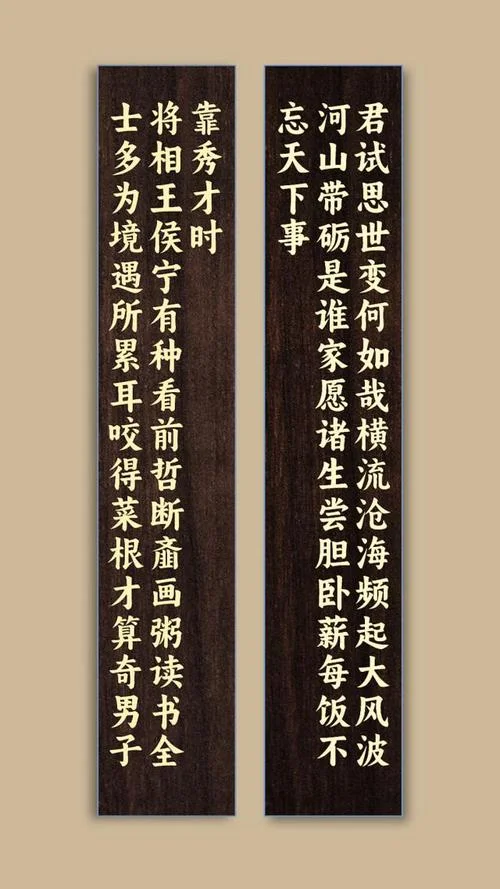 君试思世变何如哉横流沧海频起大风波
河山带砺是谁家愿诸生尝胆卧薪每饭不
忘天下事
士多为境遇所累耳咬得菜根才算奇男子
将相王侯宁有种看前哲断齑画粥读书全
靠秀才时